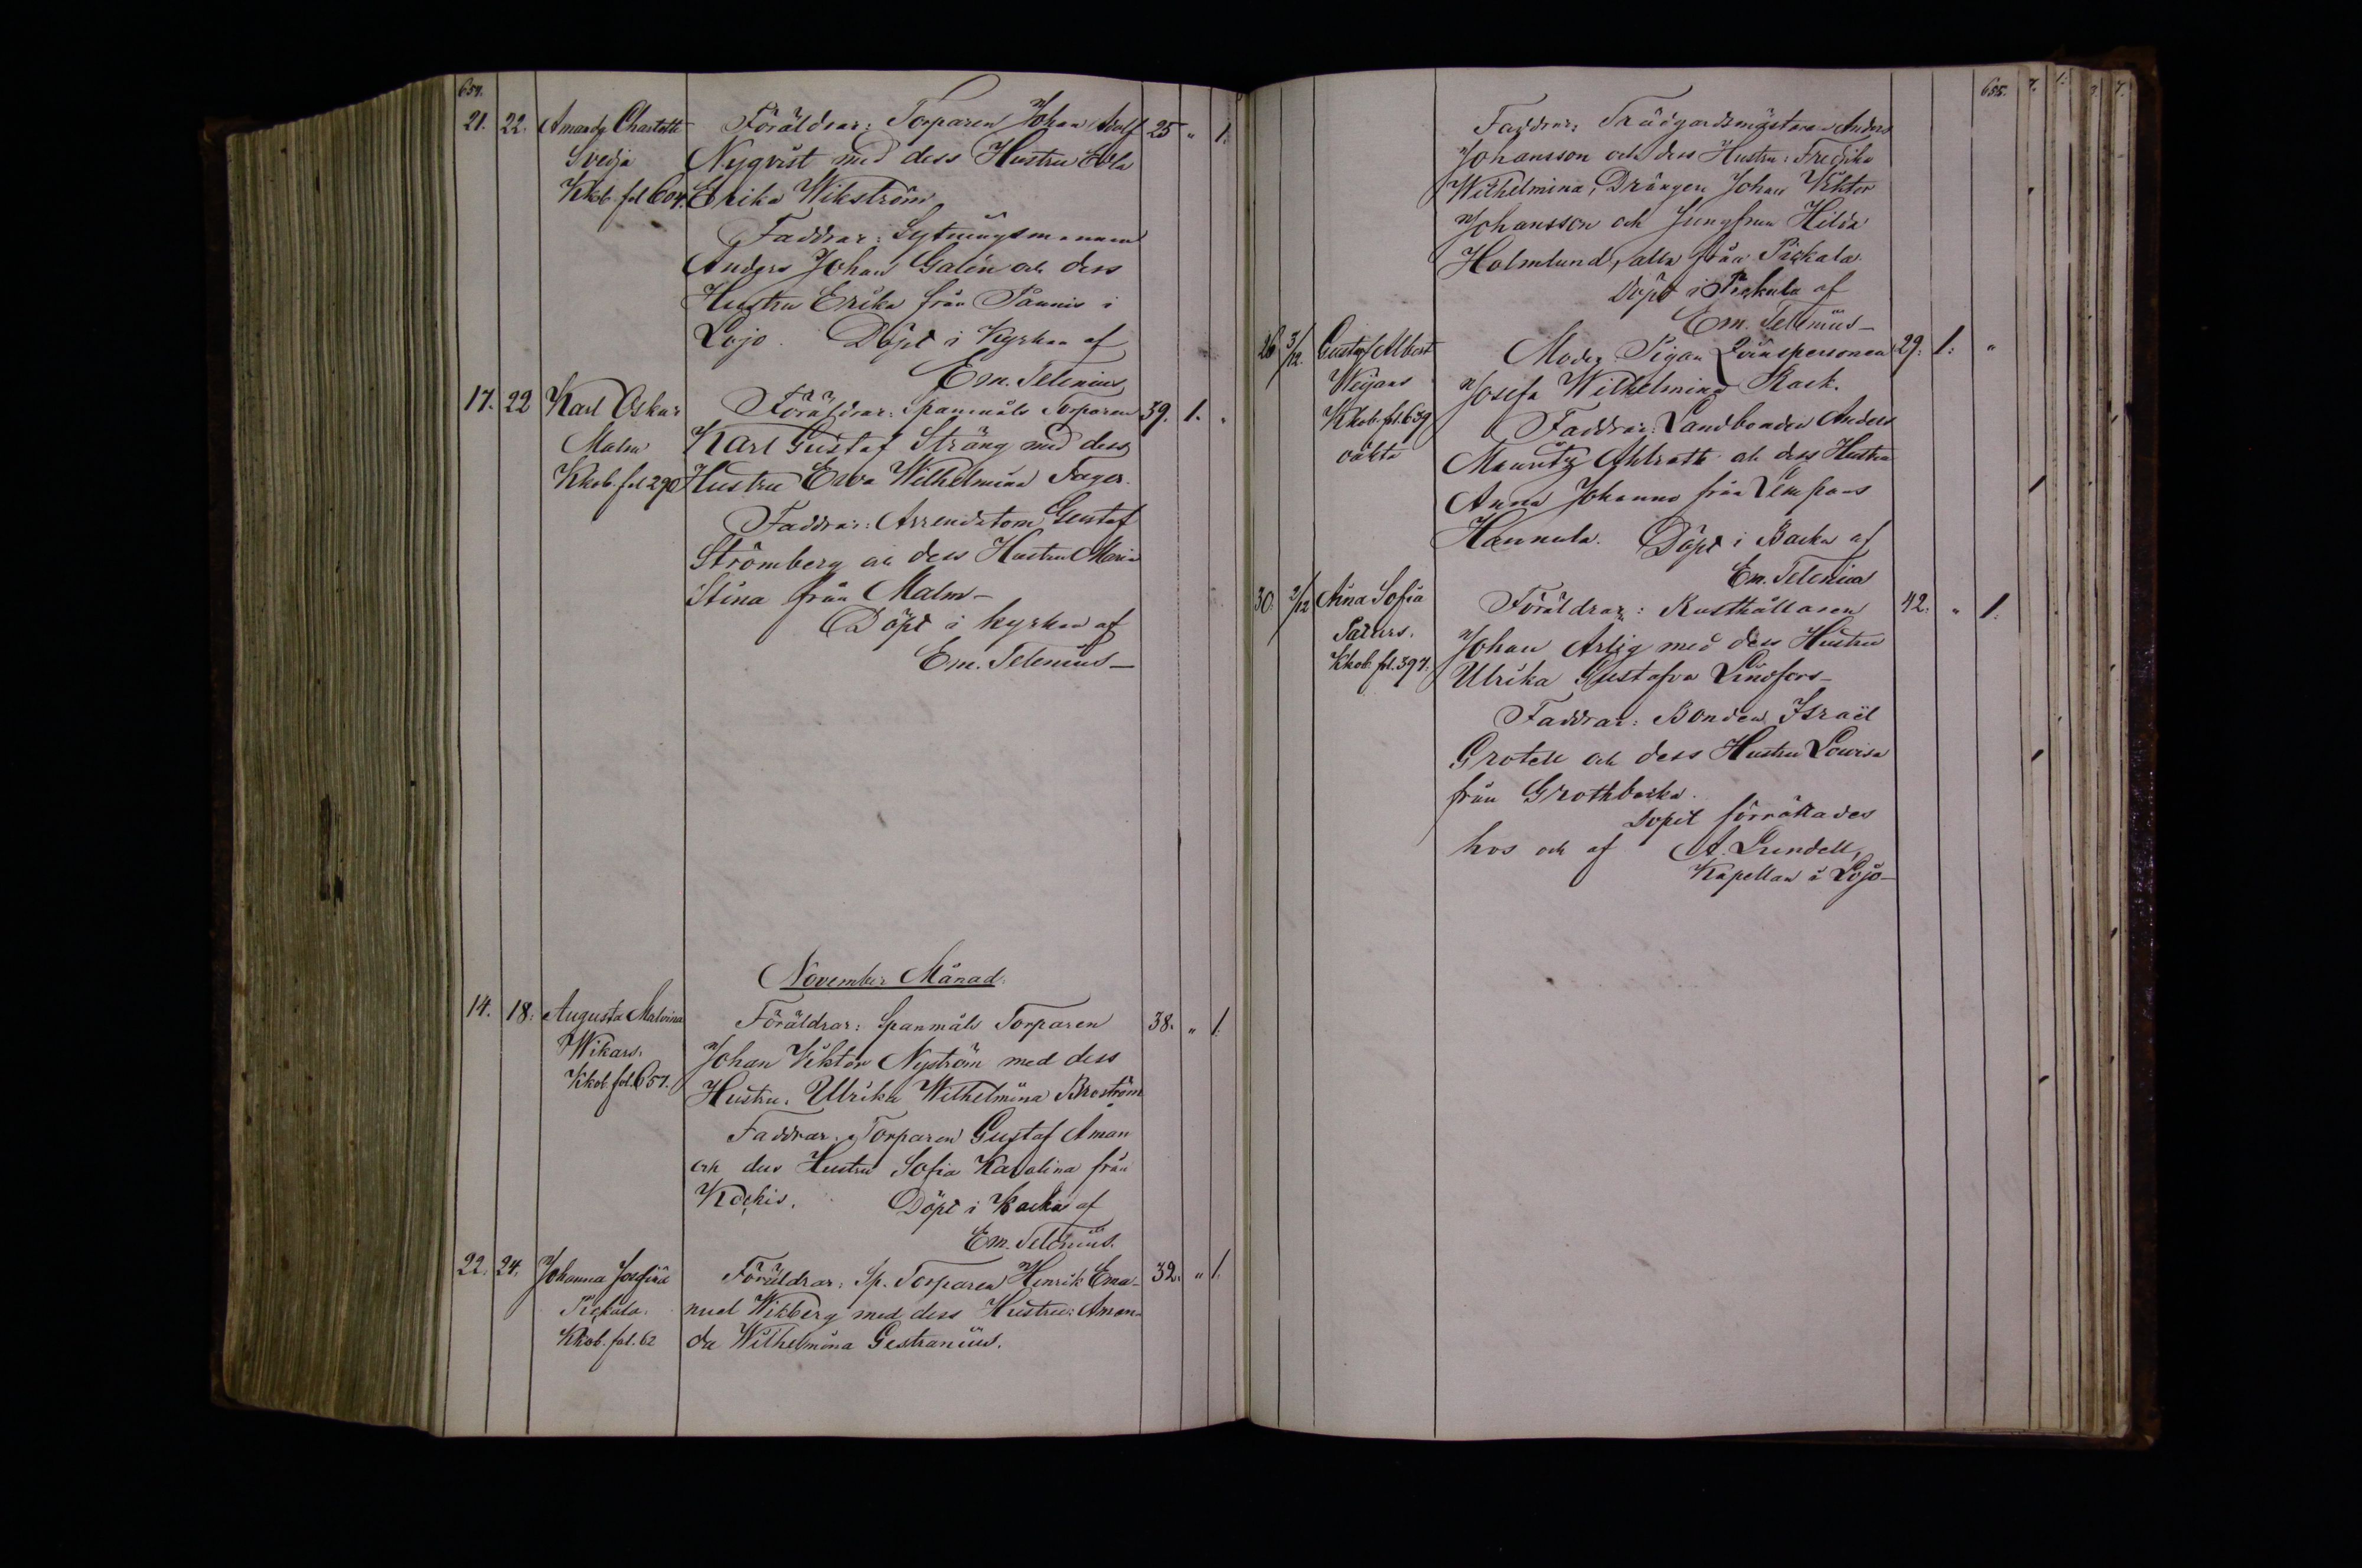 654.
21. 22. Amanda Charlotta Föräldrar: Torparen Johan Adolf 25 " 1.
Svedja Nyqvist med dess Hustru
Kkob. fol 604. Erika Wikström
Faddrar: Sytningsmannen
Anders Johan Galén och dess
Hustru Erika från Paunis i
Lojo. Döpt i Kyrkan af
Em. Telenius
17. 22 Karl Oskar Föräldrar: Spanmåls Torparen 39. 1. "
Malm Karl Gustaf Sträng med dess
Kkob. fol 290 Hustru Eva Wilhelmina Fager.
Faddrar: Arrendatorn Gustaf
Strömberg och dess Hustru Maria
Stina från Malm-
Döpt i kyrkan af
Em. Telenius-
November Månad.
14. 18. Augusta Malvina Föräldrar: Spanmåls Torparen 38. " 1.
Wikars. Johan Viktor Nyström med dess
Kkob. fol. 651. Hustru. Ulrika Wilhelmina Broström
Faddrar: Torparen Gustaf Åman
och dess Hustru Sofia Karolina från
Kockis. Döpt i Backa af
Em. Telenius.
22. 24. Johanna Josefina Föräldrar: Sp. Torparen Henrik Ema- 32. " 1.
Pickala. nuel Wikberg med dess Hustru: Aman-
Kkob. fol. 62 da Wilhelmina Gestranius.
655.
Faddrar: Trädgardsmästaren Anders
Johansson och dess Hustru: Fredrika
Wilhelmina, Drängen Johan Viktor
Johansson och Jungfrun Hilda
Holmlund, alla från Pickala.
Döpt i Pickala af
Em. Telenius-
26 3/12. Gustaf Albert Moder: Pigan Qvinspersonen 29. 1. "
Weijans Josefa Wilhelmina Rask.
Kkob. fol. 639 Faddrar: Landbonden Anders
oäkta Mauritz Ahlroth och dess Hustru
Anna Johanna från Lempans
Hannula. Döpt i Backa af
Em. Telenius
30. 2/12 Aina Sofia Föräldrar: Rusthållaren 42. " 1.
Johan Arlig med dess Hustru
Kkob. fol. 397. Ulrika Gustafva Lindfors-
Faddrar: Bonden Israël
Grotell och dess Hustru Lovisa
från Grothbacka.
Dopet förrättades
hos och af A. Lundell,
Kapellan i Lojo-